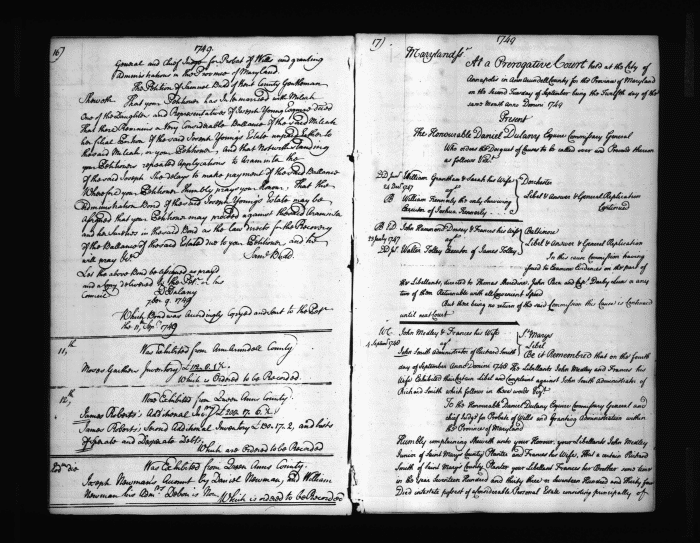 16)
1749
General and Chief Judge for Probat of Wills and granting
Administrations in the Province of Maryland
The Petition of Samuel Budd of Kent County Gentleman
Sheweth That your Petitioner has Intermarried with Milcah
One of the Daughters and Representatives of Joseph Young
That there Remains a Very Considerable Ballance of the said Milcah
her filial Portion of the said Joseph Young's Estate unpaid Either to
the said Milcah, or your Petitioner, and that Notwithstanding
your Petitioners repeated applications to Araminta the
of the said Joseph She delays to make payment of the said Ballance
Wherefore your Petitioner Humbly prays your Honour, That the
Administration Bond of the said Joseph Young's Estate may be
Assigned that your Petitioner may proceed against the said Araminta
and her Sureties in the said Bond as the Law directs for the Recovery
of the Ballance of the said Estate due to your Petitioner, and he
will pray &c.
Saml Budd
Let the above Bond be Assigned as prayed
and a Copy delivered to the
D Dulany
9. 1749
Which Bond was Accordingly Copyed and sent to the
the 11, Sepr 1749
11,th
Was Exhibited from Ann Arundell County
Inventory
Which is Ordered to be Recorded
12,th
Was Exhibited from Queen Anns County
James Roberts's Additional 200. 17. 6.
James Roberts's Second Additional Inventory £130. 17. 2, and Lists
of Sperate and Desperate Debts
Which are Ordered to be Recorded
Was Exhibited from Queen Anns County
Joseph Newman's Account by Daniel Newman, and William
Newman his
Which is ordered to be Recorded
17)
1749
Maryland ss.
At a Prerogative Court held at the City of
Annapolis in Ann Arundell County for the Province of Maryland
on the Second Tuesday of September being the Twelfth day of the
same Month Anno Domini 1749
Present
The Honourable Daniel Dulany Esquire Commissary General
Who orders the Docquet of Causes to be called over and Proceeds thereon
as follows Vizt
William Grantham & Sarah his Wife
Dorchester
Libel & Answer & General Replication
Continued
B
William Kennerly the only Surviving
Executor of Joshua Kennerly
John Hammond Dorsey & Frances his Wife
Baltimore
Libel & Answer & General Replication
Walter Tolley Executor of James Tolley
In this cause Commission having
issued to Examine Evidences on the part of
the Libellants, directed to Thomas
of them Returnable with all Convenient Speed
But there being no return of the said Commission this Cause is Continued
until next Court
WC
John Medley & Frances his Wife
St Marys
Libel
4 September 1748
John Smith Administrator of Richard Smith
Be it Remembered that on the fourth
day of September Anno Domini 1748 The Libellants John Medley and Frances his
Wife Exhibited their Certain Libel and Complaint against John Smith Administrator of
Richard Smith which follows in these words Vizt.
To the Honourable Daniel Dulany Esquire Commissary General and
Chief Judge for Probate of Wills and Granting Administrations within
the Province of Maryland
Humbly complaining Sheweth unto your Honour, your Libellants John Medley
Junior of Saint Marys County Planter and Frances his Wife, That a certain Richard
Smith of Saint Marys County Planter your Libellant Frances her Brother some time
in the year Seventeen Hundred and thirty three or Seventeen Hundred and thirty four
Died intestate possest of a Considerable Personal Estate consisting principally of